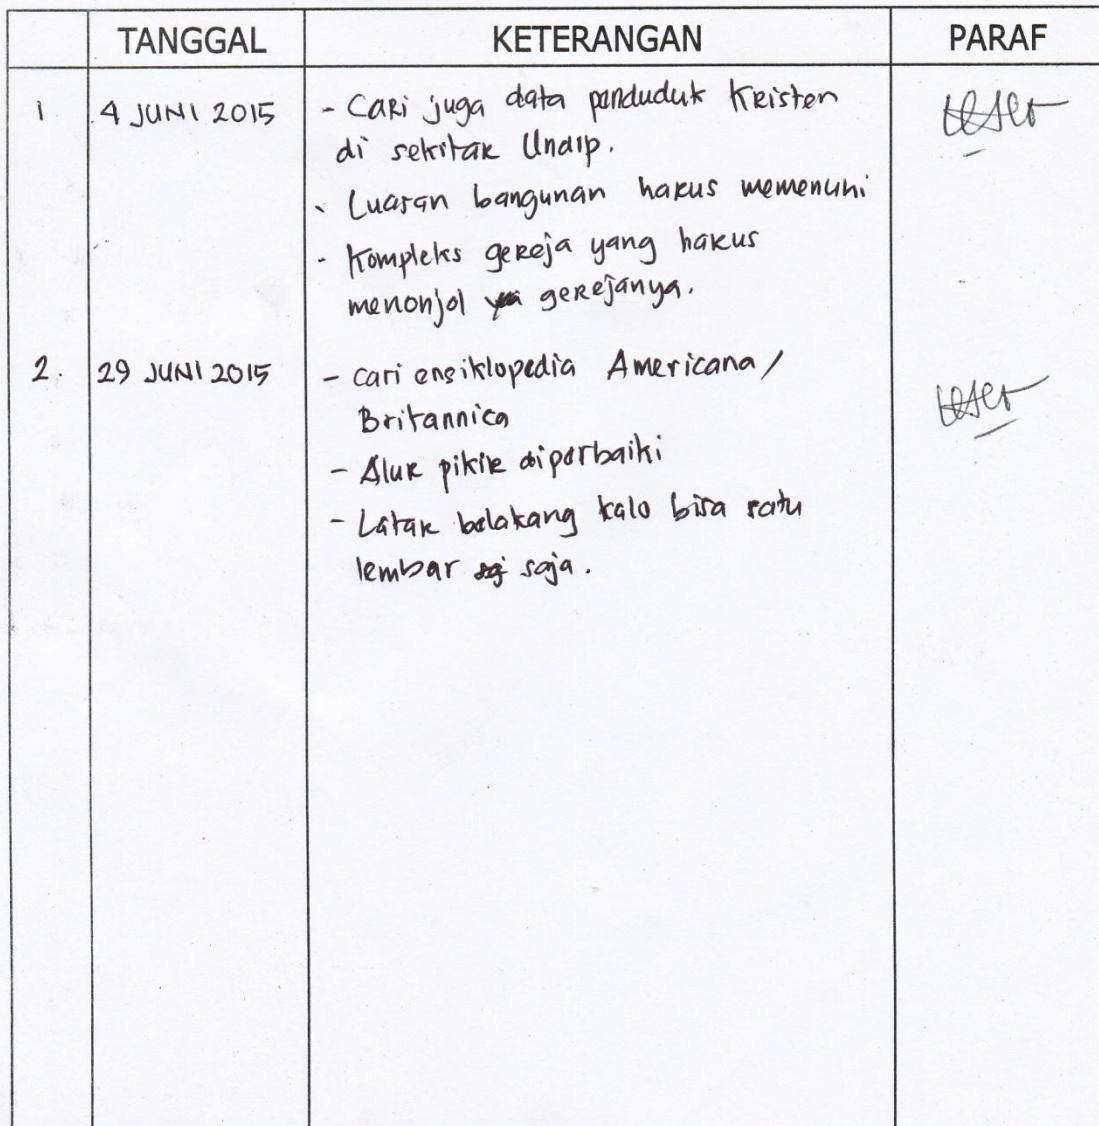 TANGGAL KETERANGAN PARAF
1 4 JUNI 2015 - Cari juga data penduduk Kristen
di sekitar Undip.
- Luasan bangunan harus memenuhi
- Kompleks gereja yang harus
menonjol gerejanya.
2. 29 JUNI 2015 - cari ensiklopedia Americana/
Britannica
- Alur pikir diperbaiki
- Latar belakang kalo bisa satu
lembar saja.